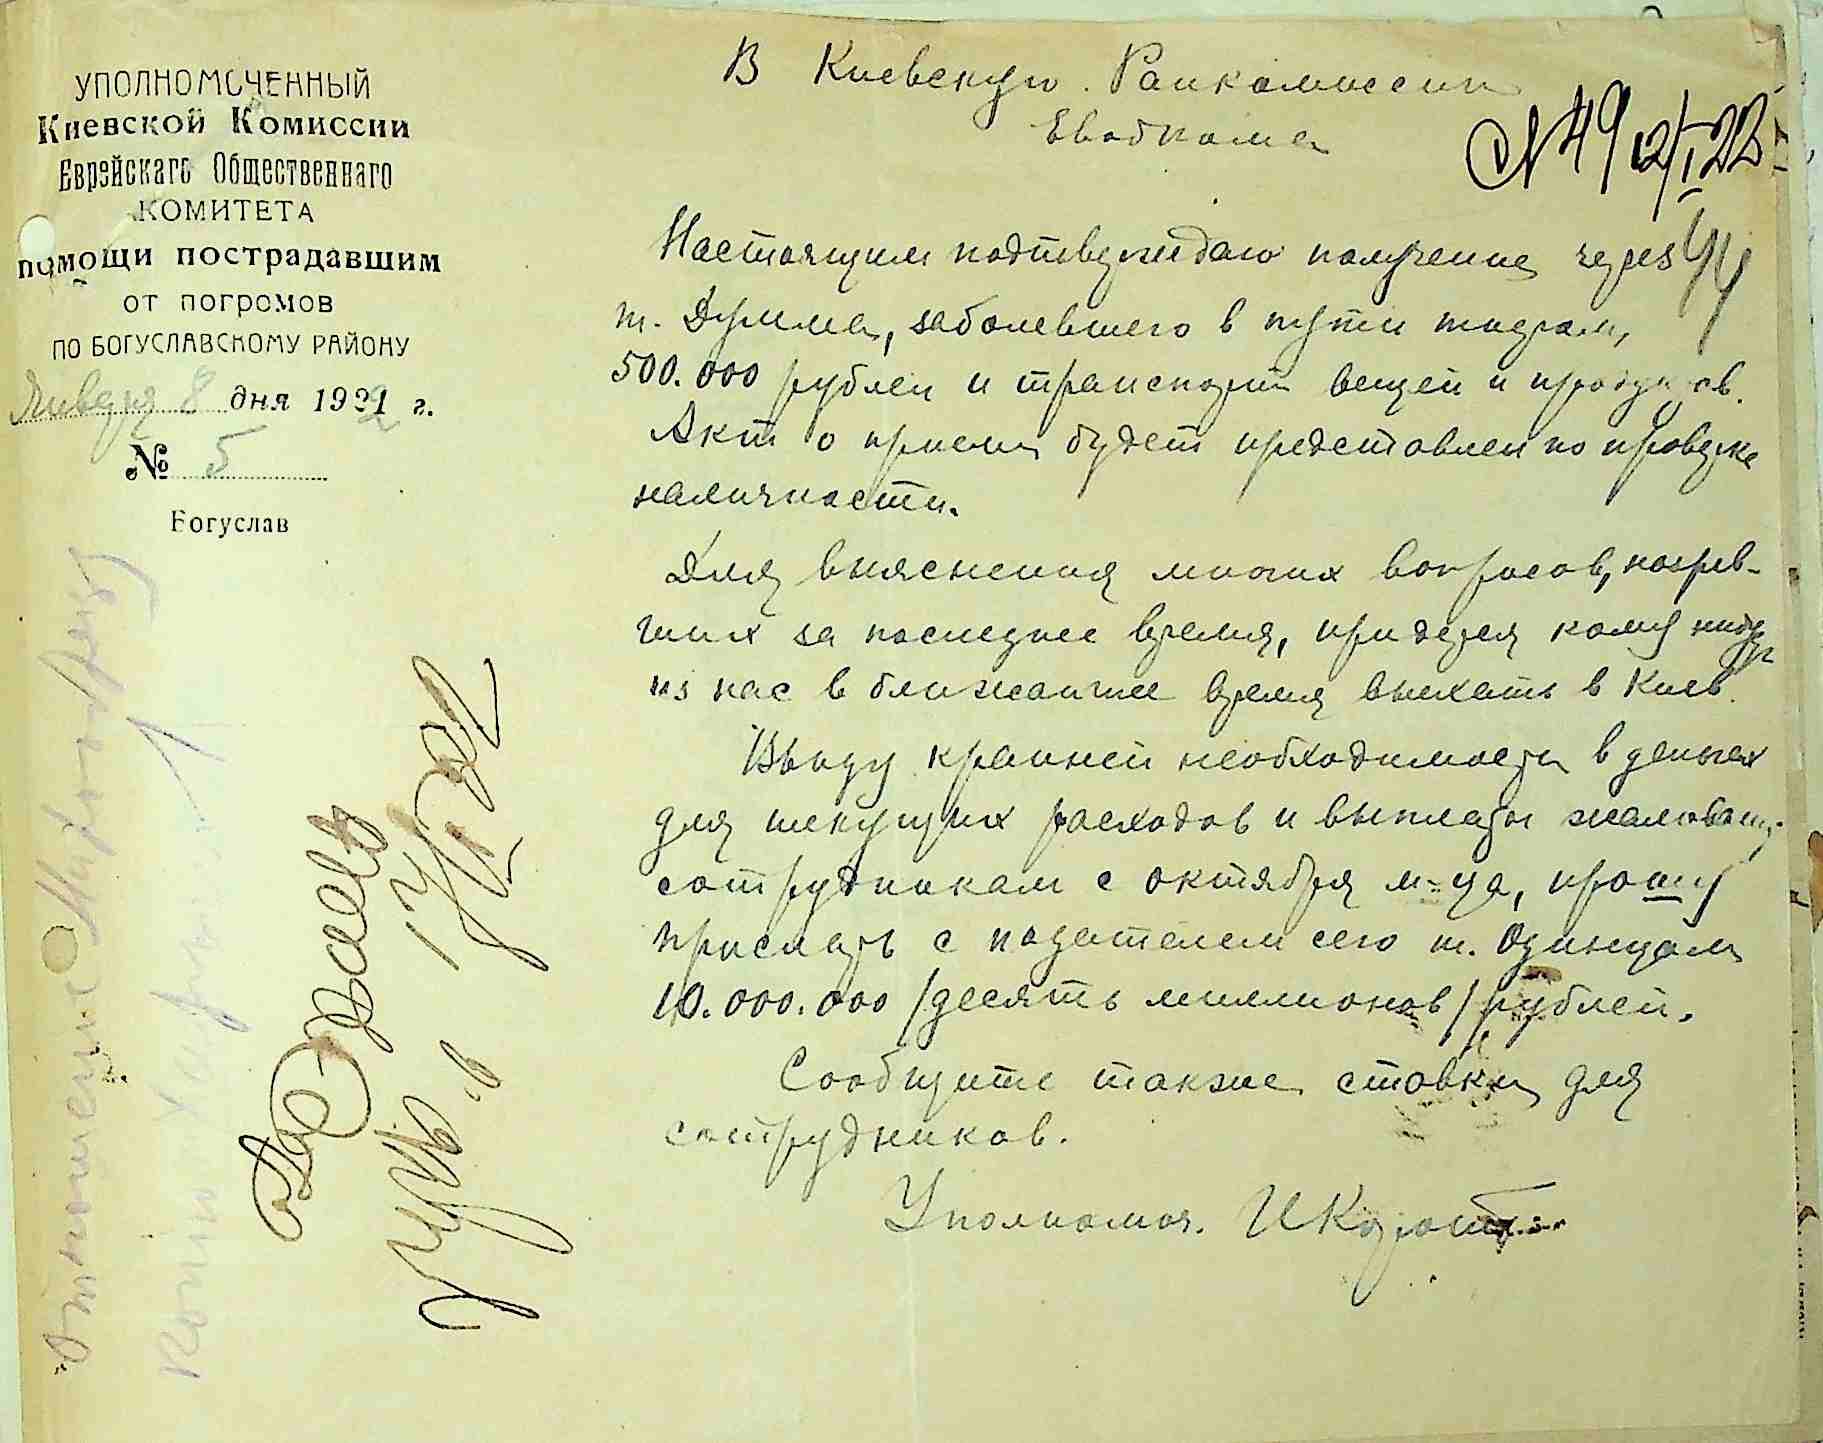 УПОЛНОМОЧЕННЫЙ
Киевской Комиссии
Еврейскаго Общественнаго
КОМИТЕТА
помощи пострадавшим
от погромов
ПО БОГУСЛАВСКОМУ РАЙОНУ
Января 8 дня 1922 г.
№ 5
Богуслав
В Киевскую Райкомиссию
Евобкома
№ 49 12/I-22
Настоящим подтверждаю получение через
т. Дулима, заболевшего в пути тифом,
500.000 рублей и транспорт вещей и продуктов.
Акт о приеме будет представлен по проверке
наличности.
Для выяснения многих вопросов, назрев-
ших за последнее время, придется кому нибудь
из нас в ближайшее время выехать в Киев.
Ввиду крайней необходимости в деньгах
для текущих расходов и выплаты жалования
сотрудникам с октября м-ца, прошу
прислать с подателем сего т. Одинцом
10.000.000 /десять миллионов/ рублей.
Сообщите также ставки для
сотрудников.
Уполномоч.
Отношение
копию